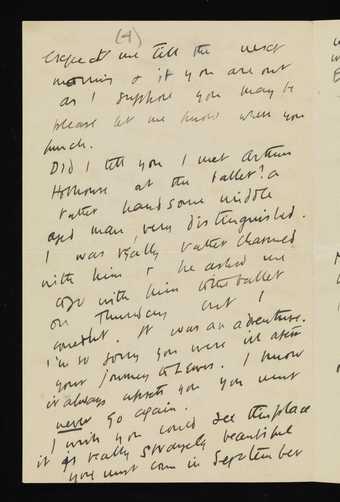 (4)
expect me till the next
morning & if you are out
as I suppose you may be
please let me know when you
lunch.
Did I tell you I met Arthur
Hobhouse at the ballet? a
rather handsome middle
aged man, very distinguished.
I was really rather charmed
with him & he asked me
to go with him to the ballet
on Thursday but I
couldn't. It was an adventure.
I'm so sorry you were ill after
your journey to Lewes. I know
it always upsets you you must
never go again.
I wish you could see this place
it is really strangely beautiful
you must come in September